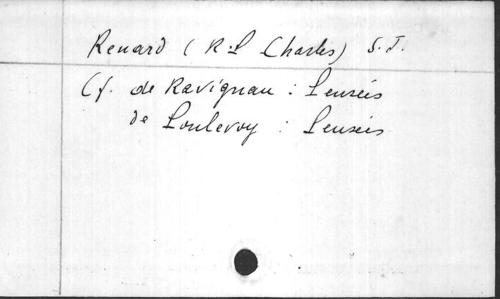 Renard (R.P. Charles) S.J.
Cf. de Ravignan : Pensées
de Ponlevoy : Pensées